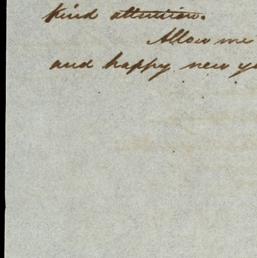 kind attention.
Allow me
and happy new ye